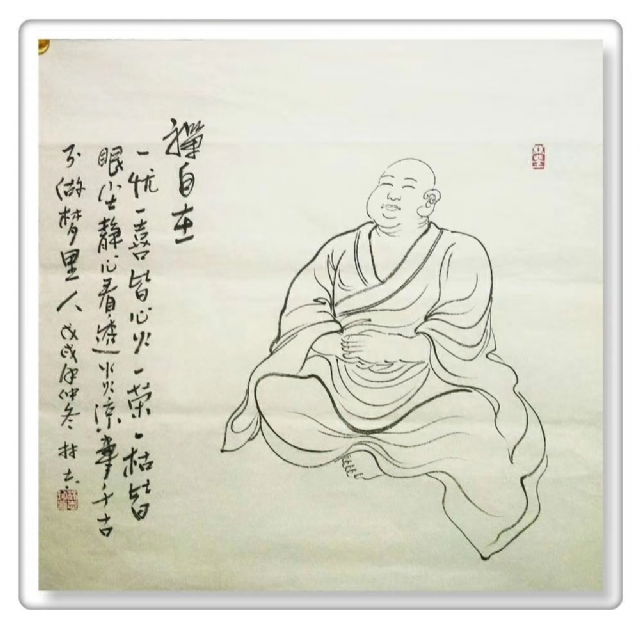 禪自在
一忧一喜皆心火一荣一枯皆
眼尘静心看透炎凉事千古
不做梦里人戊戌年仲冬